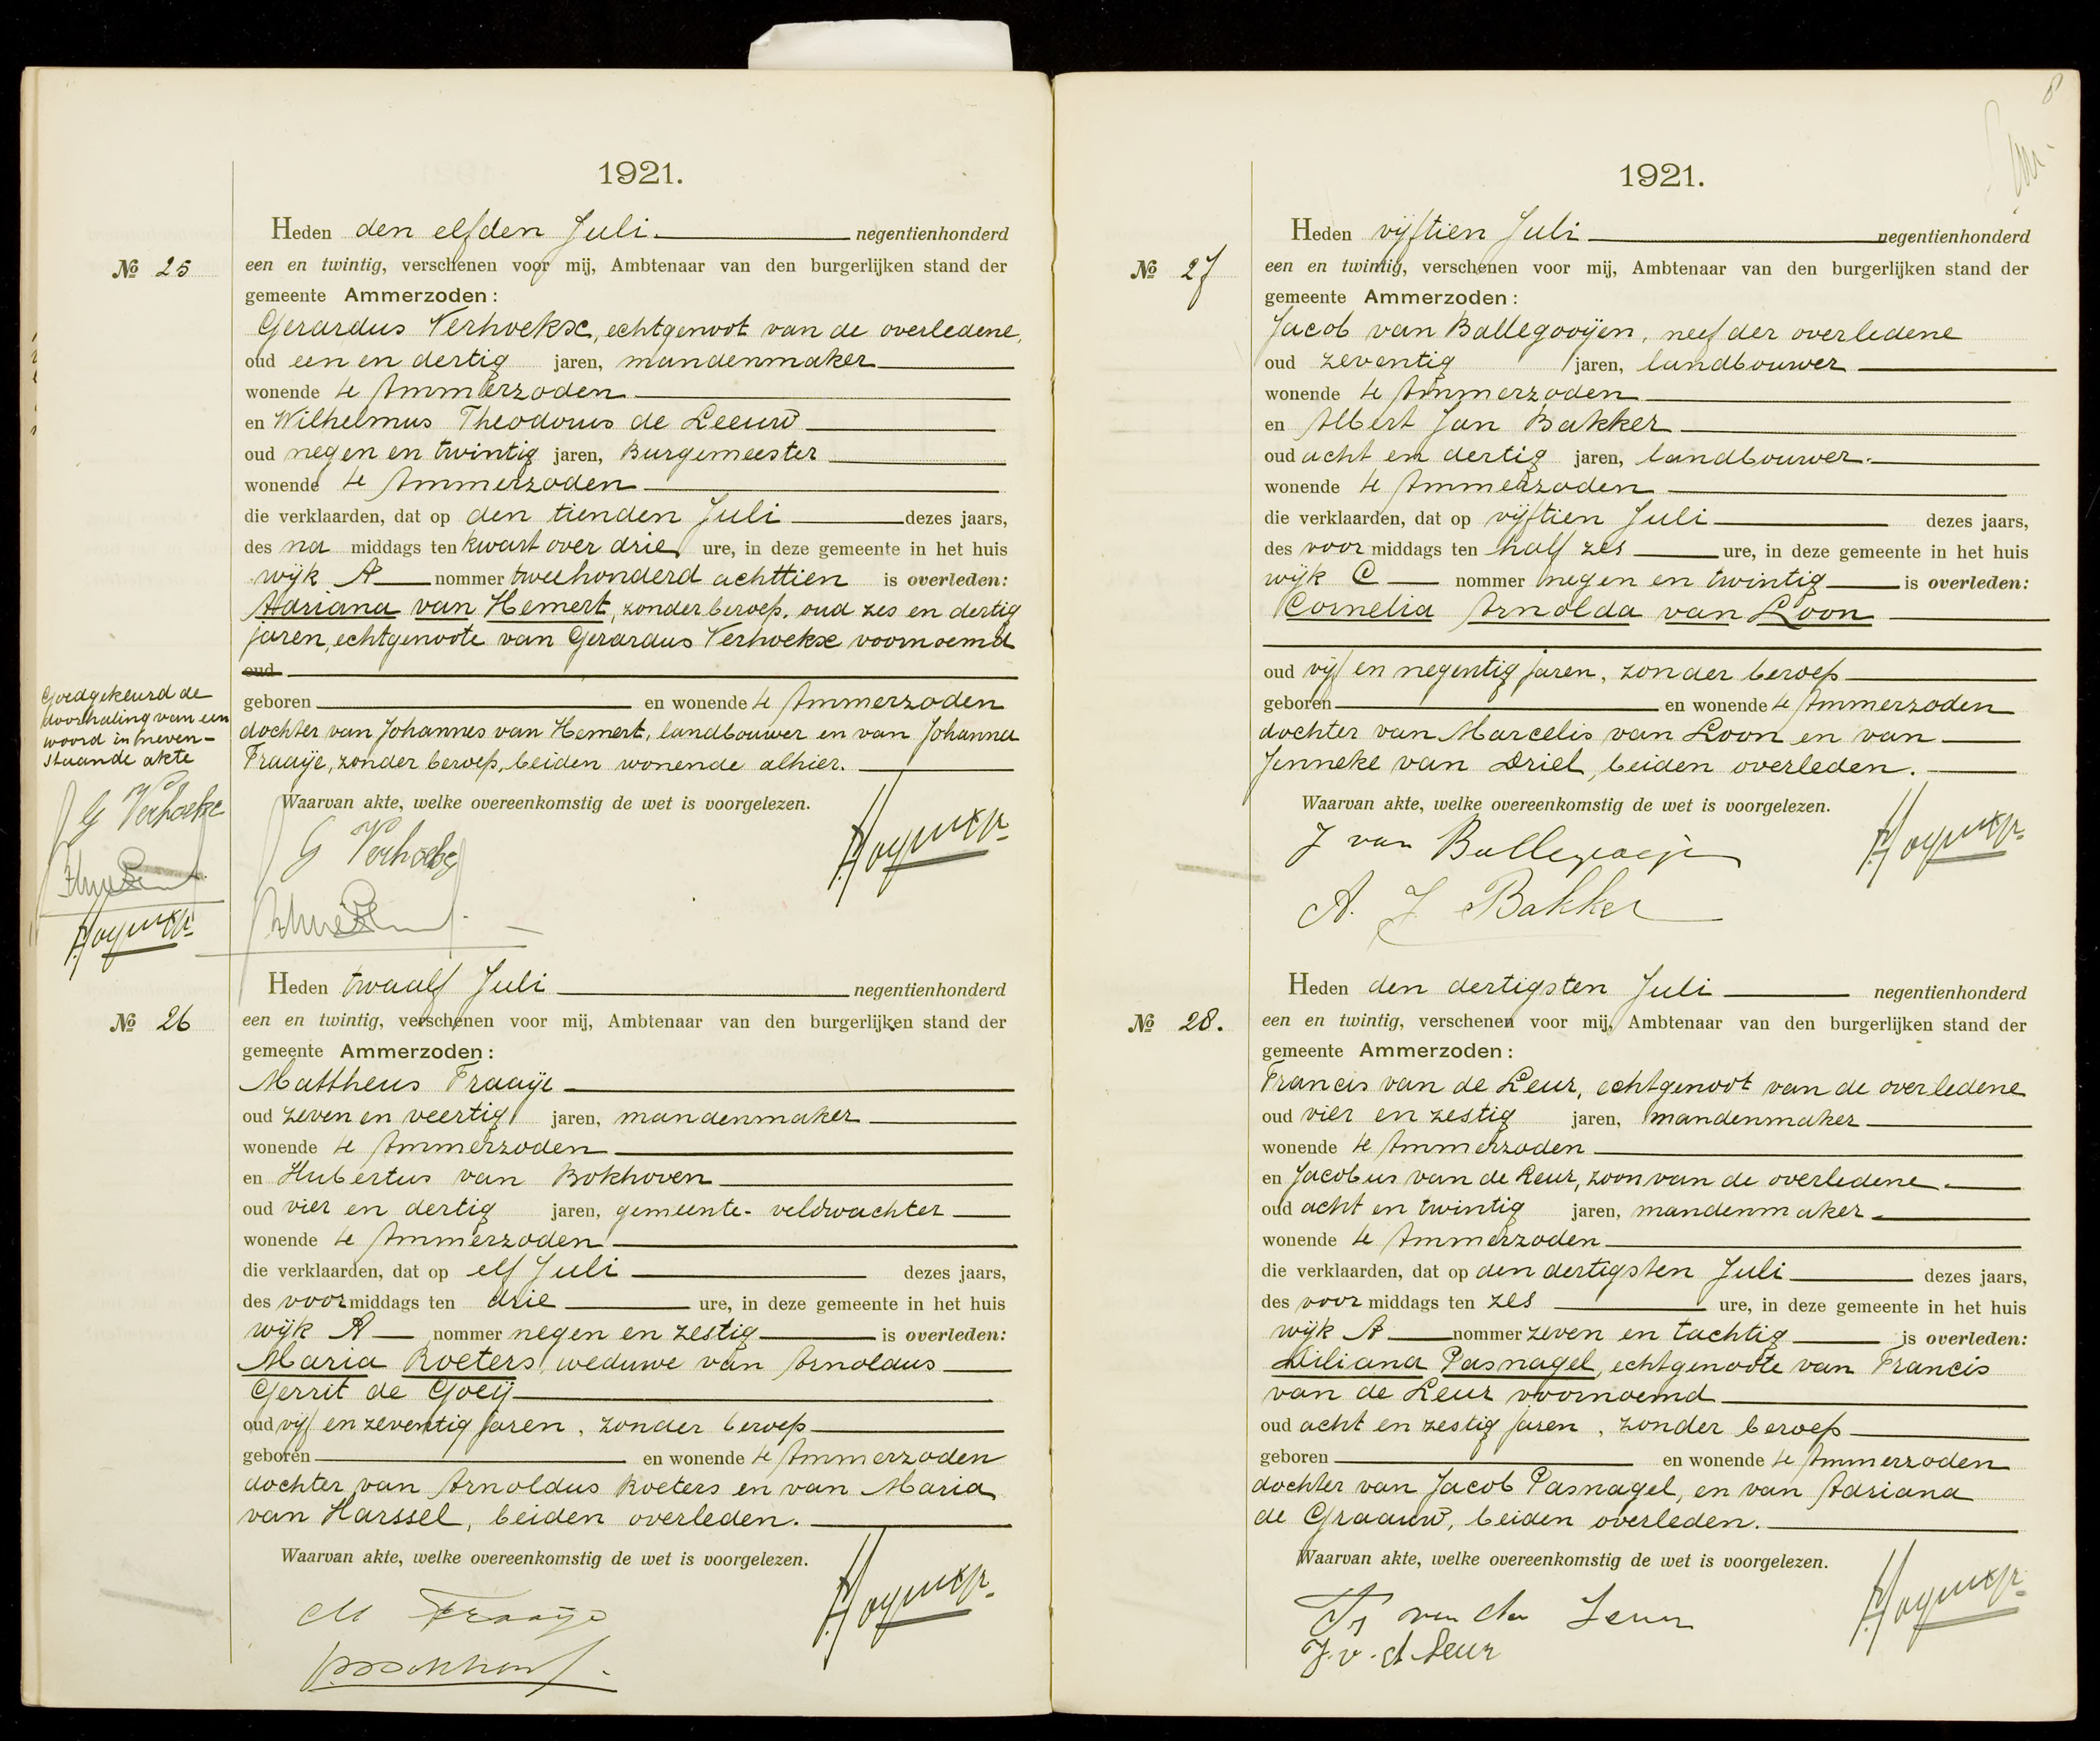 1921.
Heden den elfden Juli negentienhonderd
№ 25
een en twintig, verschenen voor mij, Ambtenaar van den burgerlijken stand der
gemeente Ammerzoden:
Gerardus Verhoeks, echtgenoot van de overledene,
oud een en dertig jaren, mandenmaker
wonende te Ammerzoden
en Wilhelmus Theodorus de Leeuw
oud negen en twintig jaren, Burgemeester
wonende te Ammerzoden
die verklaarden, dat op den tienden Juli dezes jaars,
des na middags ten kwart over drie ure, in deze gemeente in het huis
wijk A nommer tweehonderd achttien is overleden:
Adriana van Hemert, zonder beroep, oud zes en dertig
jaren, echtgenoote van Gerardus Verhoeks voornoemd
oud
geboren en wonende te Ammerzoden
dochter van Johannes van Hemert, landbouwer en van Johanna
Fraaije, zonder beroep, beiden wonende alhier.
Waarvan akte, welke overeenkomstig de wet is voorgelezen.
G Verhoeks
Goedgekeurd de
doorhaling van een
woord in neven-
staande akte
G Verhoeks
Heden twaalf Juli negentienhonderd
№ 26
een en twintig, verschenen voor mij, Ambtenaar van den burgerlijken stand der
gemeente Ammerzoden:
Mattheus Fraaije
oud zeven en veertig jaren, mandenmaker
wonende te Ammerzoden
en Hubertus van Bokhoven
oud vier en dertig jaren, gemeente-veldwachter
wonende te Ammerzoden
die verklaarden, dat op elf Juli dezes jaars,
des voor middags ten drie ure, in deze gemeente in het huis
wijk A nommer negen en zestig is overleden:
Maria Roeters, weduwe van Arnoldus
Gerrit de Goeij
oud vijf en zeventig jaren, zonder beroep
geboren en wonende te Ammerzoden
dochter van Arnoldus Roeters en van Maria
van Harssel, beiden overleden.
Waarvan akte, welke overeenkomstig de wet is voorgelezen.
M Fraaije
8
1921.
Heden vijftien Juli negentienhonderd
№ 27
een en twintig, verschenen voor mij, Ambtenaar van den burgerlijken stand der
gemeente Ammerzoden:
Jacob van Ballegooijen, neef der overledene
oud zeventig jaren, landbouwer
wonende te Ammerzoden
en Albert Jan Bakker
oud acht en dertig jaren, landbouwer.
wonende te Ammerzoden
die verklaarden, dat op vijftien Juli dezes jaars,
des voor middags ten half zes ure, in deze gemeente in het huis
wijk C nommer negen en twintig is overleden:
Cornelia Arnolda van Loon
oud vijf en negentig jaren, zonder beroep
geboren en wonende te Ammerzoden
dochter van Marcelis van Loon en van
Jenneke van Driel, beiden overleden.
Waarvan akte, welke overeenkomstig de wet is voorgelezen.
J van Ballegooije
A. J Bakker
Heden den dertigsten Juli negentienhonderd
№ 28.
een en twintig, verschenen voor mij, Ambtenaar van den burgerlijken stand der
gemeente Ammerzoden:
Francis van de Leur, echtgenoot van de overledene
oud vier en zestig jaren, mandenmaker
wonende te Ammerzoden
en Jacobus van de Leur, zoon van de overledene
oud acht en twintig jaren, mandenmaker
wonende te Ammerzoden
die verklaarden, dat op den dertigsten Juli dezes jaars,
des voor middags ten zes ure, in deze gemeente in het huis
wijk A nommer zeven en tachtig is overleden:
Diliana Pasnagel, echtgenoote van Francis
van de Leur voornoemd
oud acht en zestig jaren, zonder beroep
geboren en wonende te Ammerzoden
dochter van Jacob Pasnagel, en van Adriana
de Graauw, beiden overleden.
Waarvan akte, welke overeenkomstig de wet is voorgelezen.
Fr van de Leur
J. v. d Leur